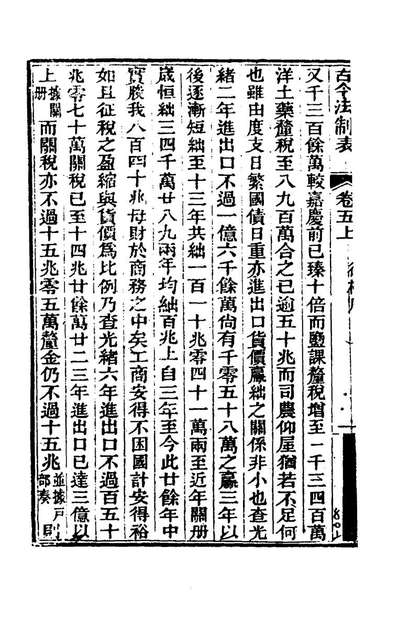 古今法制表　卷五上
又千三百餘萬較嘉慶前已臻十倍而鹽課釐稅增至一千三四百萬
洋土藥釐稅至八九百萬合之已逾五十兆而司農仰屋猶若不足何
也雖由度支日繁國債日重亦進出口貨價贏絀之關係非小也查光
緒二年進出口不過一億六千餘萬尙有千零五十八萬之贏三年以
後逐漸短絀至十三年共絀一百一十兆零四十一萬兩至近年關册
歲恒絀三四千萬廿八九兩年均絀百兆上自三年至今此廿餘年中
實勝我八百四十兆母財於商務之中矣工商安得不困國計安得裕
如且征稅之盈縮與貨價爲比例乃查光緒六年進出口不過百五十
兆零七十萬關稅已至十四兆廿餘萬廿二三年進出口已達三億以
上據關册而關稅亦不過十五兆零五萬釐金仍不過十五兆並據戶部奏則